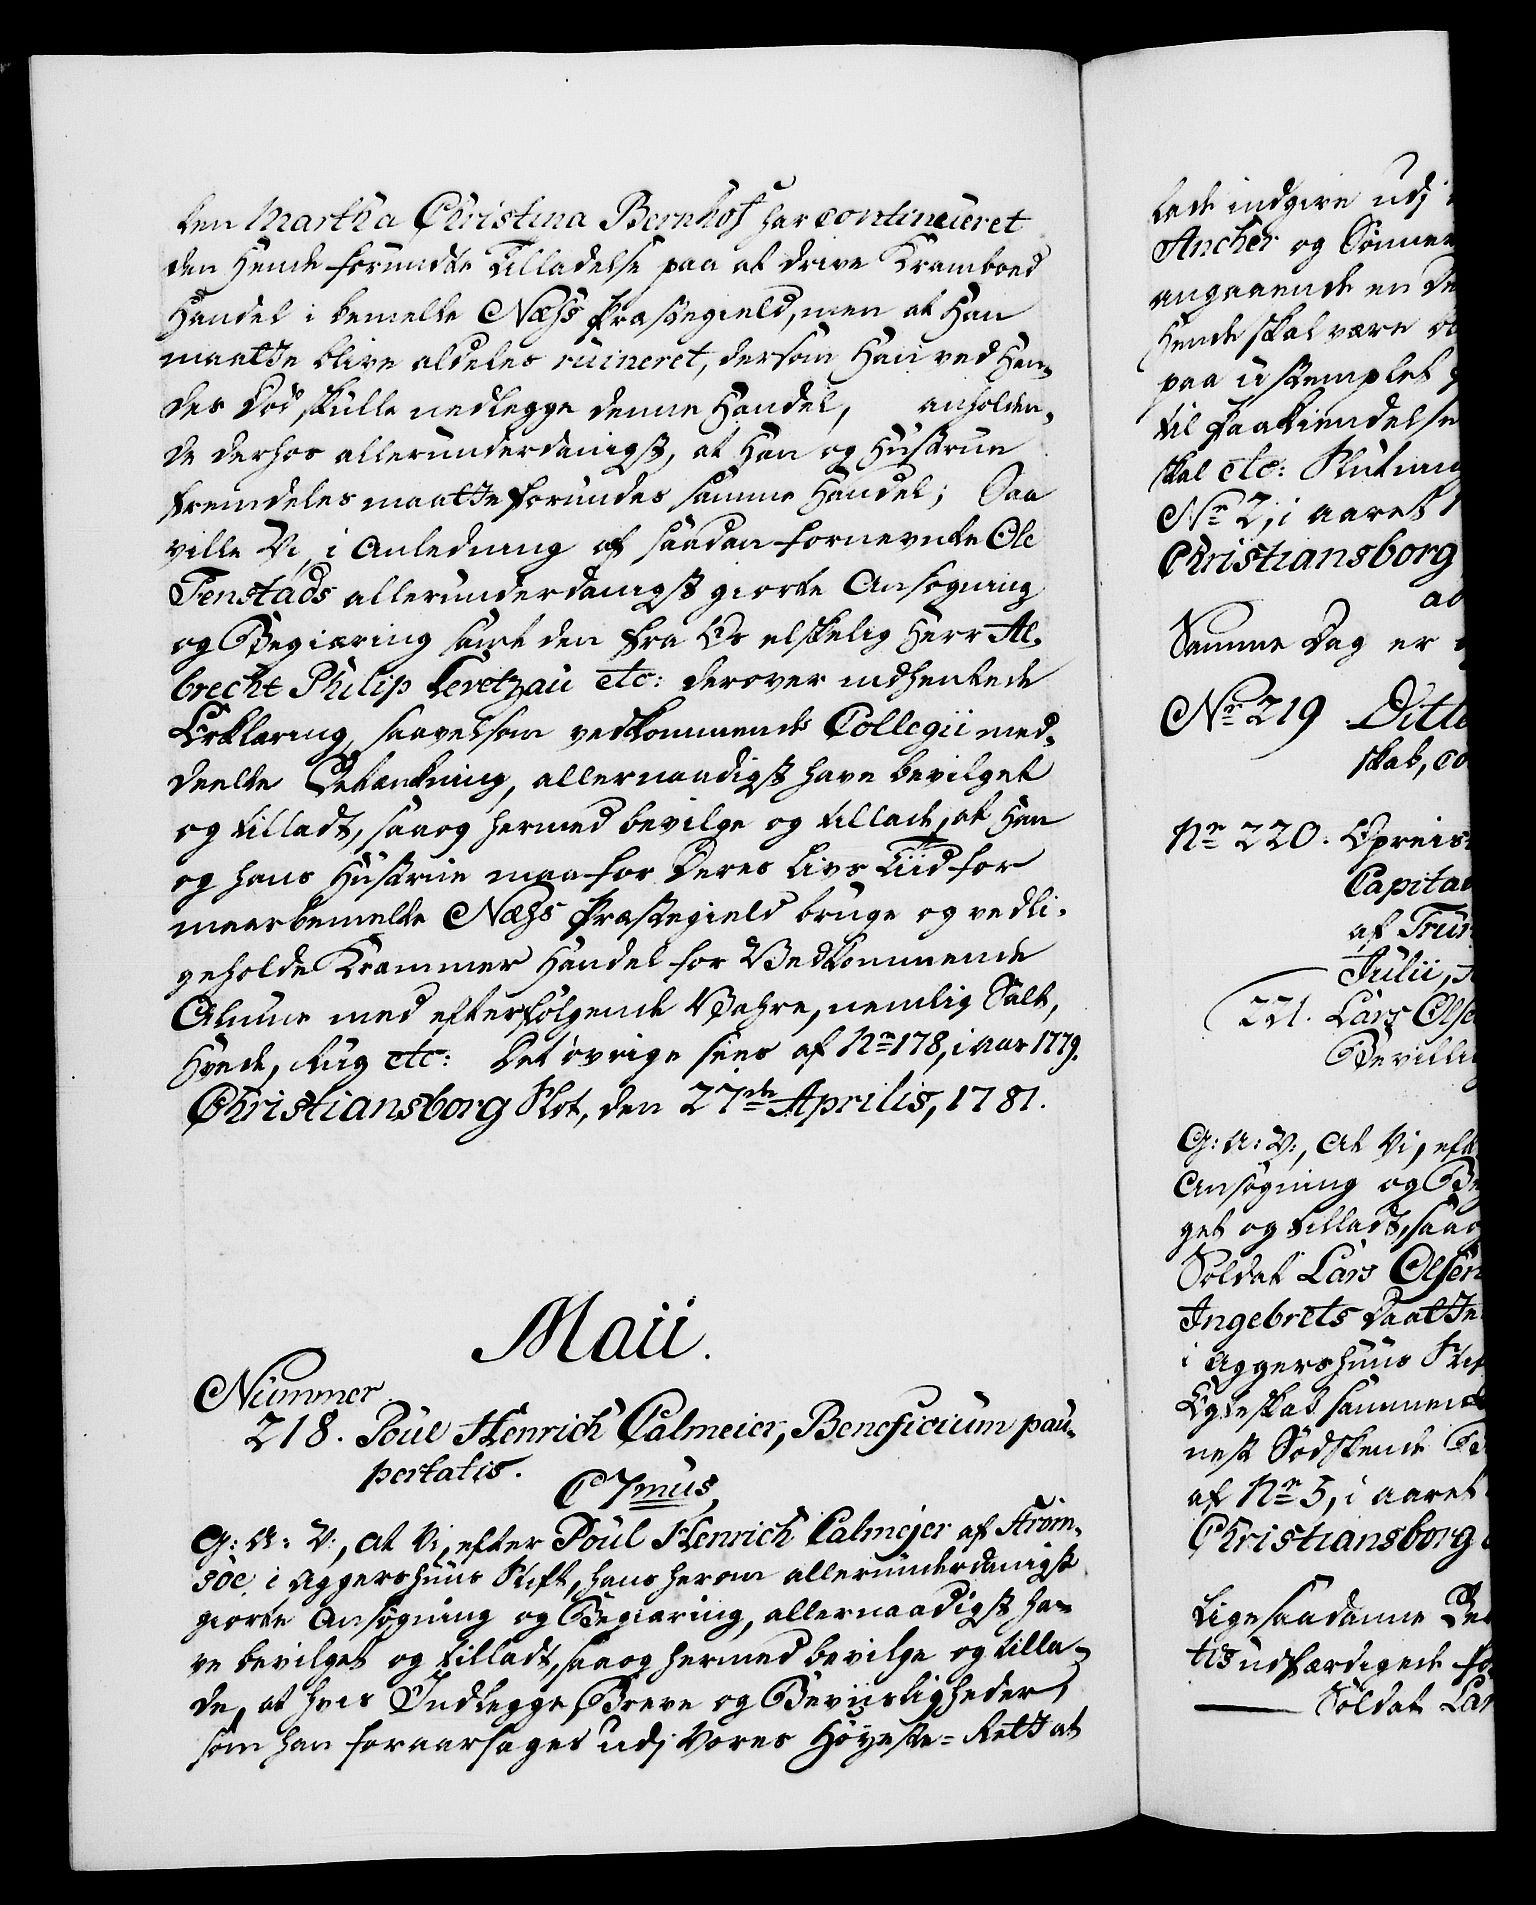 den Martha Christina Bernhof har continueret
den Hende forundte Tilladelse paa at drive Kramboed
Handel i bemelte Næhs Præstegield, men at Han
maatte blive aldeles ruineret, dersom Han ved Hen-
des Död skulle nedlegge denne Handel, anholden-
de derhos allerunderdanigst, at Han og Hustrue
fremdeles maatte forundes samme Handel; Saa
ville Vi, i Anledning af saadan fornevnte Ole
Tenstads allerunderdanigst giorte Ansögning
og Begiæring samt den fra Os elskelig Herr Al-
brecht Philip Levetzau etc: derover indhentede
Erklæring, saavelsom vedkommende Collegii med-
deelte Betænkning, allernaadigst have bevilget
og tilladt, saa og hermed bevilge og tillade, at Han
og hans Hustrue maa for Deres Livs Tiid for
meerbemelte Næhs Præstegield bruge og vedli-
geholde Krammer Handel for Vedkommende
Almue med efterfölgende Vahre, nemlig Salt,
Hvede, Rug etc: Det övrige sees af Nr 178, i aar 1779.
Christiansborg Slot, den 27de Aprilis, 1781.
Maii.
Nummer
218. Poul Henrich Calmeier, Beneficium pau-
pertatis.
C 7mus,
G: A: V:, at Vi, efter Poul Henrich Calmejer af Ström-
söe i Aggershuus Stift, hans herom allerunderdanigst
giorte Ansögning og Begiæring, allernaadigst ha-
ve bevilget og tilladt, saa og hermed bevilge og tilla-
de, at hvis Indlegge, Breve og Beviisligheder,
som han foraarsages udj Vores Höyeste-Rett at
lade indgive udj
Ancher og Sönner
angaaende en De
Hende skal være
paa ustemplet
til Paakiendelse
skal etc: Slutning
Nr 2, i aaret
Christiansborg
Samme Dag er
Nr 219 Ditle
skab, co
Nr 220: Opreis-
Capitai
af Trun
Julii,
221. Lars Olse
Bevilli
G: A: V:, At Vi, eft
Ansögning og Be
get og tilladt, saa o
Soldat Lars Olsen
Ingebrets Daatte
i Aggershuus Stif
Egteskab sammen
nest Södskende B
af Nr 5, i aaret
Christiansborg
Lige saadanne Be
tis udfærdigede fo
Soldat Lar